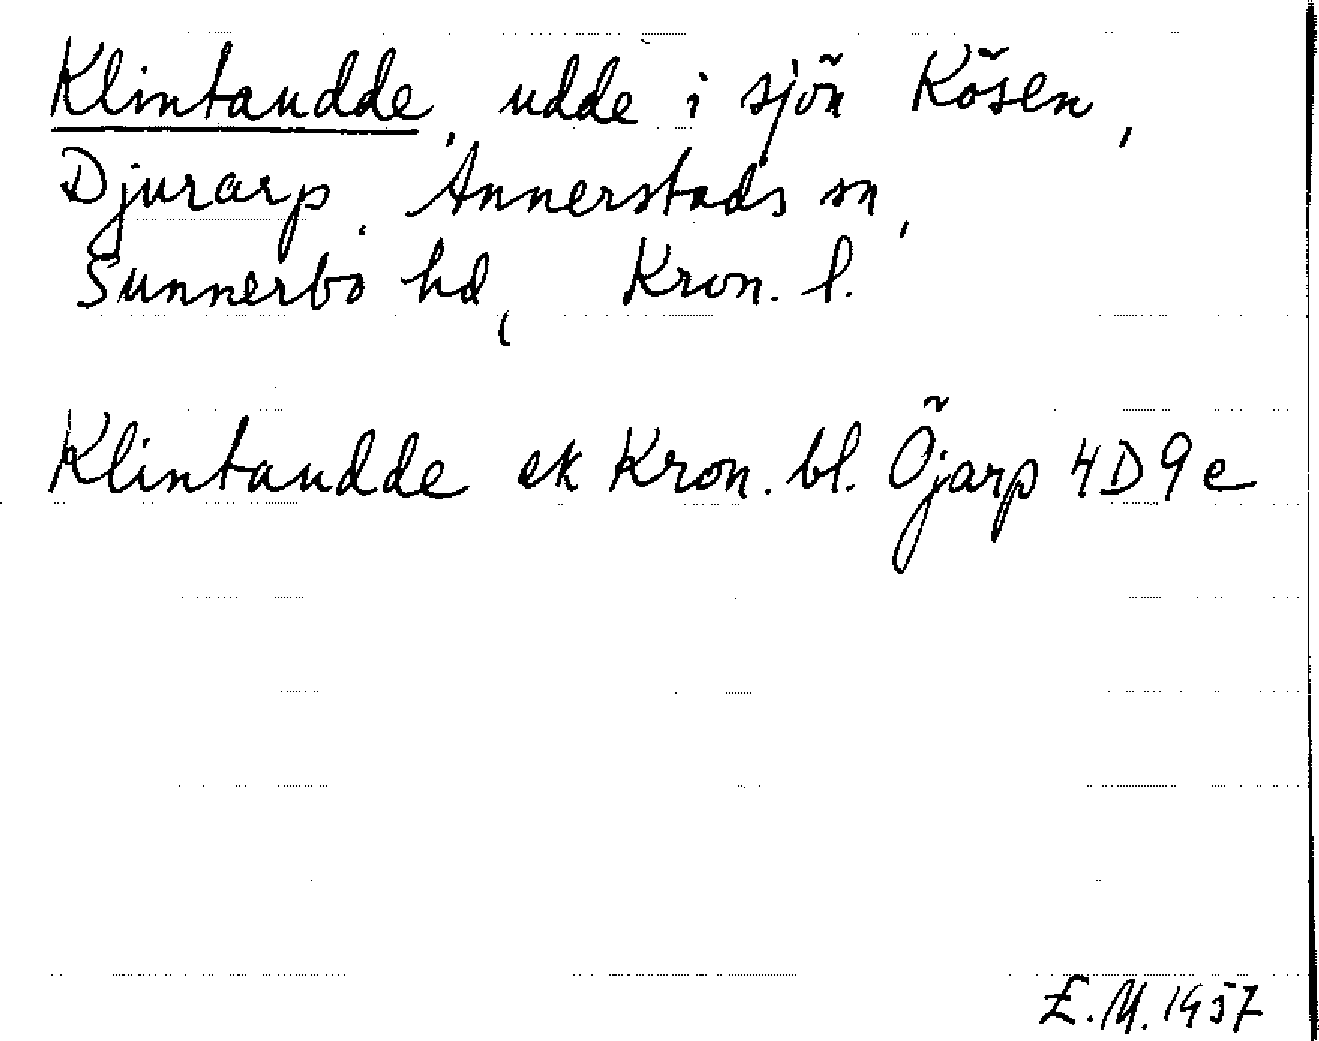 Klintaudde, udde i sjön Kösen,
Djurarp, Annerstads sn,
Sunnerbo hd, Kron. l.
Klintaudde ek Kron. bl. Öjarp 4D9e
E.M. 1957